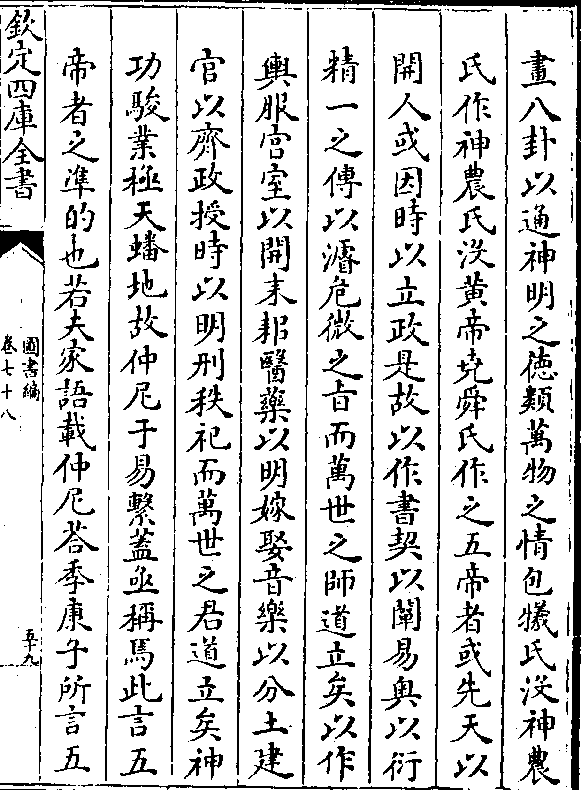 畫八卦以通神明之德類萬物之情包犧氏沒神農
氏作神農氏沒黃帝堯舜氏作之五帝者或先天以
開人或因時以立政是故以作書契以闡易奥以衍
精一之傳以濬危微之旨而萬世之師道立矣以作
輿服宫室以開耒耜醫藥以明嫁娶音樂以分土建
官以齊政授時以明刑秩祀而萬世之君道立矣神
功駿業極天蟠地故仲尼于易繫蓋亟稱焉此言五
帝者之準的也若夫家語載仲尼荅季康子所言五
欽定四庫全書
圖書編
卷七十八
五十九